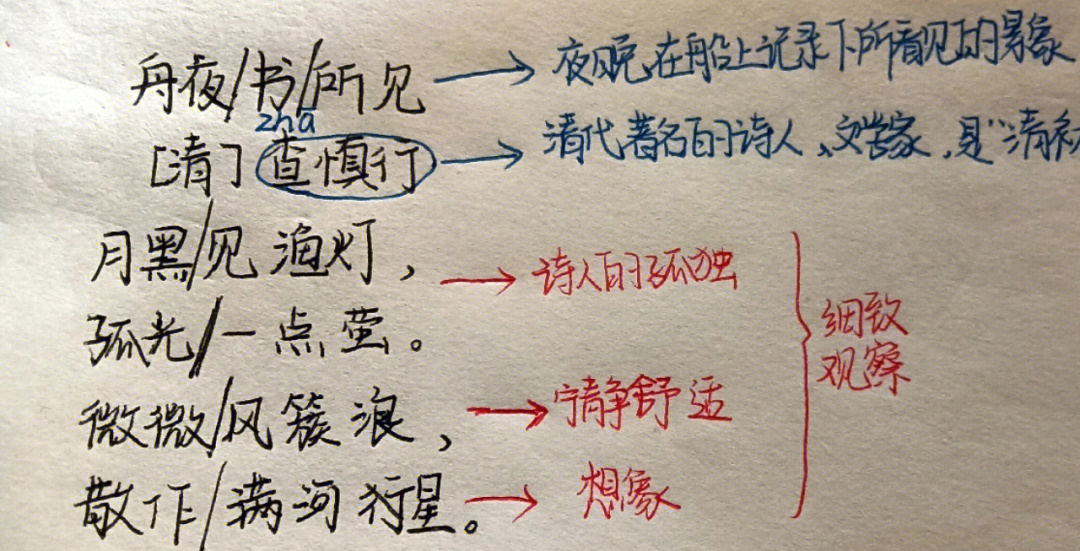 舟夜/书/所见 → 夜晚在船上记录下所看见的景象
zhā
[清] 查慎行 → 清代著名的诗人、文学家,是"清初
月黑/见渔灯,
→ 诗人的孤独
孤光/一点萤。
细致
观察
微微/风簇浪, → 宁静舒适
散作/满河行星。 → 想象